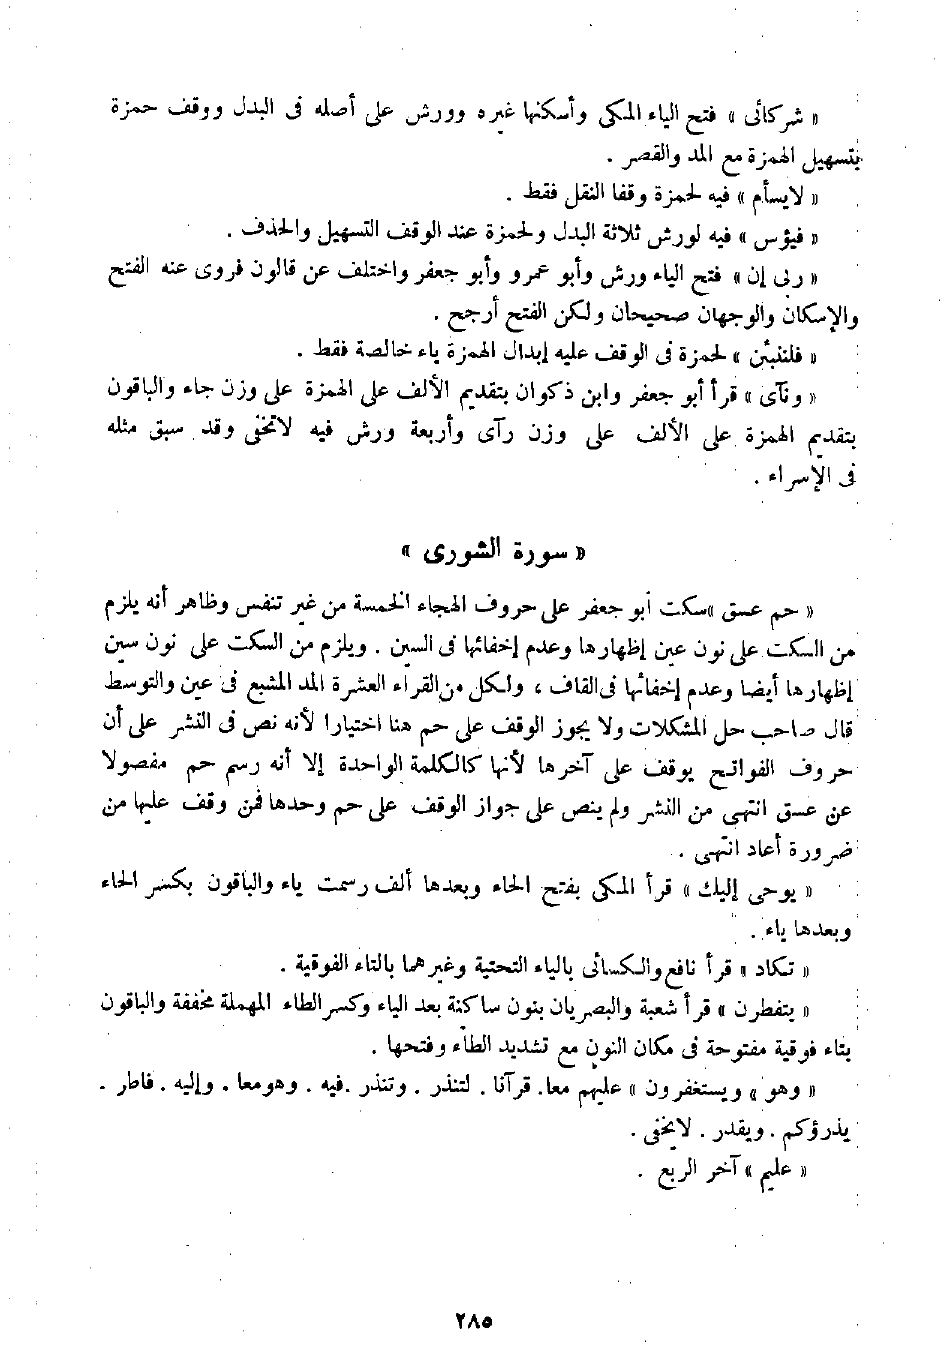 « شركائى » فتح الياء المكى وأسكنها غيره وورش على أصله فى البدل ووقف حمزة
بتسهيل الهمزة مع المد والقصر .
« لايسأم » فيه لحمزة وقفا النقل فقط .
« فيؤس » فيه لورش ثلاثة البدل ولحمزة عند الوقف التسهيل والحذف .
« ربى إن » فتح الياء ورش وأبو عمرو وأبو جعفر واختلف عن قالون فروى عنه الفتح
والإسكان والوجهان صحيحان ولكن الفتح أرجح .
« فلننبئن » لحمزة فى الوقف عليه إبدال الهمزة ياء خالصة فقط .
« ونآى » قرأ أبو جعفر وابن ذكوان بتقديم الألف على الهمزة على وزن جاء والباقون
بتقديم الهمزة على الألف على وزن رآى وأربعة ورش فيه لاتخفى وقد سبق مثله
فى الإسراء .
« سورة الشورى »
« حم عسق » سكت أبو جعفر على حروف الهجاء الخمسة من غير تنفس وظاهر أنه يلزم
من السكت على نون عين إظهارها وعدم إخفائها فى السين . ويلزم من السكت على نون سين
إظهارها أيضا وعدم إخفائها فى القاف ، ولكل من القراء العشرة المد المشبع فى عين والتوسط
قال صاحب حل المشكلات ولا يجوز الوقف على حم هنا اختيارا لأنه نص فى النشر على أن
حروف الفواتح يوقف على آخرها لأنها كالكلمة الواحدة إلا أنه رسم حم مفصولا
عن عسق انتهى من النشر ولم ينص على جواز الوقف على حم وحدها فمن وقف عليها من
ضرورة أعاد انتهى .
« يوحى إليك » قرأ المكى بفتح الحاء وبعدها ألف رسمت ياء والباقون بكسر الحاء
وبعدها ياء .
« تكاد » قرأ نافع والكسائى بالياء التحتية وغيرهما بالتاء الفوقية .
« يتفطرن » قرأ شعبة والبصريان بنون ساكنة بعد الياء وكسر الطاء المهملة مخففة والباقون
بتاء فوقية مفتوحة فى مكان النون مع تشديد الطاء وفتحها .
« وهو » ويستغفرون » عليهم معا . قرآنا . لتنذر . وتنذر . فيه . وهو معا . وإليه . فاطر .
يذرؤكم . ويقدر . لايخفى .
« عليم » آخر الربع .
٢٨٥